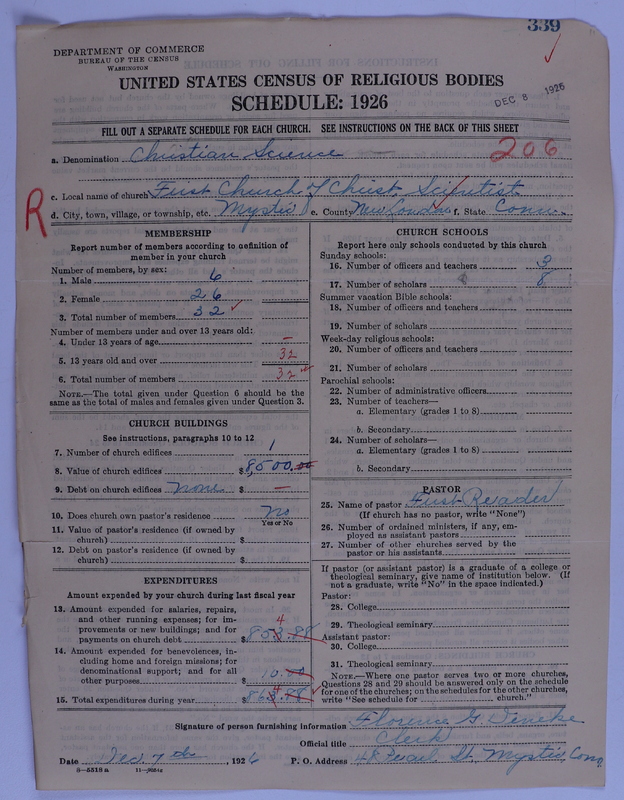 339
DEPARTMENT OF COMMERCE
BUREAU OF THE CENSUS
WASHINGTON
UNITED STATES CENSUS OF RELIGIOUS BODIES
SCHEDULE: 1926
DEC 8 1926
FILL OUT A SEPARATE SCHEDULE FOR EACH CHURCH. SEE INSTRUCTIONS ON THE BACK OF THIS SHEET
a. Denomination Christian Science
206
c. Local name of church First Church of Christ Scientist
R
d. City, town, village, or township, etc. Mystic e. County New London f. State Conn.
MEMBERSHIP
Report number of members according to definition of
member in your church
Number of members, by sex:
1. Male 6
2. Female 26
3. Total number of members 32
Number of members under and over 13 years old:
4. Under 13 years of age —
5. 13 years old and over 32
6. Total number of members 32
NOTE.—The total given under Question 6 should be
same as the total of males and females given under Question 3.
CHURCH BUILDINGS
See instructions, paragraphs 10 to 12
7. Number of church edifices 1
8. Value of church edifices $8,500.00
9. Debt on church edifices none $ —
10. Does church own pastor's residence No
Yes or No
11. Value of pastor's residence (if owned by
church) $
12. Debt on pastor's residence (if owned by
church) $
EXPENDITURES
Amount expended by your church during last fiscal year
13. Amount expended for salaries, repairs,
and other running expenses; for im-
provements or new buildings; and for
4
payments on church debt $853.88
14. Amount expended for benevolences, in-
cluding home and foreign missions; for
denominational support; and for all
other purposes 10.00
4
15. Total expenditures during year $863.88
CHURCH SCHOOLS
Report here only schools conducted by this church
Sunday schools:
16. Number of officers and teachers 3
17. Number of scholars 8
Summer vacation Bible schools:
18. Number of officers and teachers
19. Number of scholars
Week-day religious schools:
20. Number of officers and teachers
21. Number of scholars
Parochial schools:
22. Number of administrative officers
23. Number of teachers—
a. Elementary (grades 1 to 8)
b. Secondary
24. Number of scholars—
a. Elementary (grades 1 to 8)
b. Secondary
PASTOR
25. Name of pastor First Reader
(If church has no pastor, write "None")
26. Number of ordained ministers, if any, em-
ployed as assistant pastors
27. Number of other churches served by the
pastor or his assistants
If pastor (or assistant pastor) is a graduate of a college or
theological seminary, give name of institution below. (If
not a graduate, write "No" in the space indicated.)
Pastor:
28. College
29. Theological seminary
Assistant pastor:
30. College
31. Theological seminary
NOTE.—Where one pastor serves two or more churches,
Questions 28 and 29 should be answered only on the schedule
for one of the churches; on the schedules for the other churches,
write "See schedule for church."
Signature of person furnishing information Florence G.
Official title Clerk
Date Dec. 7th, 1926 P. O. Address 48 Pearl St. Mystic, Conn.
8—5518a